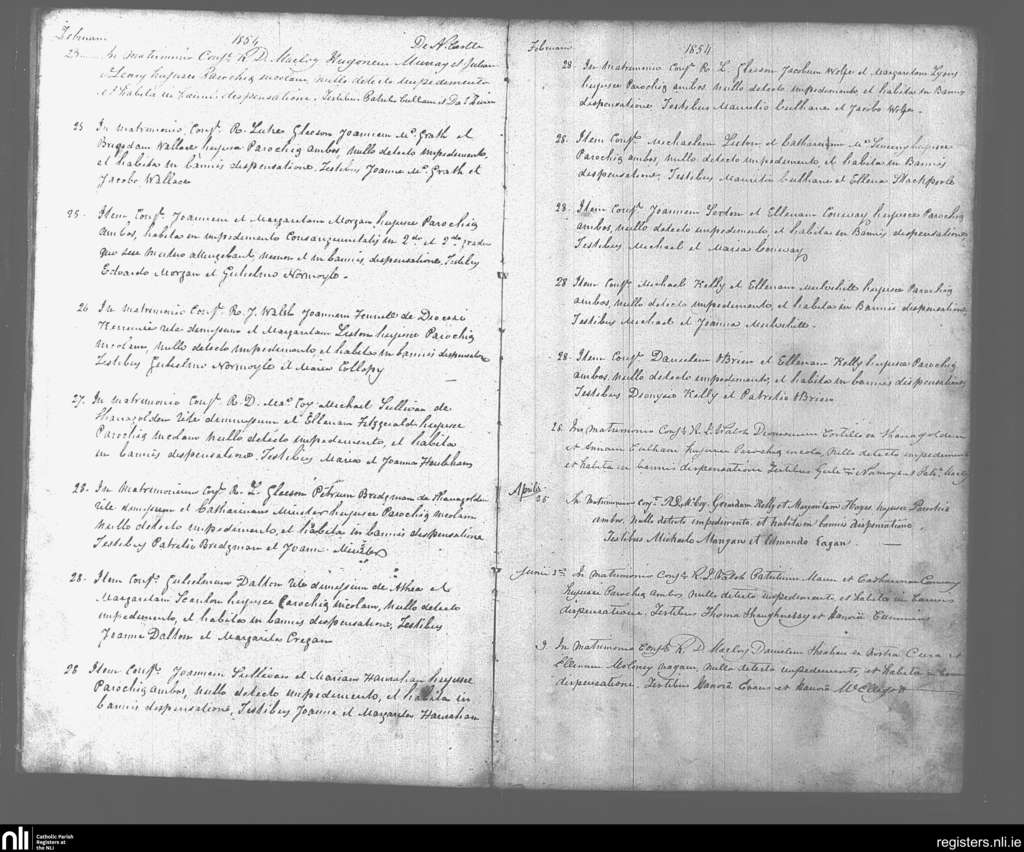 Februarii 1854 De N. Castle
25 In matrimonio Conj. R. D. Macloy Hugonem Murray et
Leary hujusce Parochiæ incolam, nullo detecto impedimento
et habita in bannis dispensatione. Testibus Patricio Culhane et
25 In matrimonio, Conj. R. Luke Gleeson Joannem Mc Grath et
Brigidam Wallace hujusce Parochiæ ambos, nullo detecto impedimento,
et habita in bannis dispensatione. Testibus Joanne Mc Grath et
Jacobo Wallace
25. Item, Conj. Joannem et Margaritam Morgan hujusce Parochiæ
ambos, habita in impedimento Consanguinitatis in 2do et 2do gradu
quo sese mutuo attingebant, necnon et in bannis, dispensatione, Testibus
Edvardo Morgan et Gulielmo Normoyle.
26 In matrimonio Conj. R. J. Walsh Joannem Fennell de Diocesi
Kerriensi rite demissum et Margaritam Liston hujusce Parochiæ
incolam, nullo detecto impedimento, et habita in bannis dispensatione
Testibus Gulielmo Normoyle et Maria Collopy
27. In matrimonio Conj. R. D. Mac Coy Michael Sullivan de
Shanagolden rite demissum et Ellenam Fitzgerald hujusce
Parochiæ incolam nullo detecto impedimento, et habita
in bannis dispensatione. Testibus Maria et Joanna Hanrahan
28. In Matrimonium Conj. R. L. Gleeson Petrum Bridgman de Shanagolden
rite demissum et Catharinam Minister hujusce Parochiæ incolam
nullo detecto impedimento, et habita in bannis dispensatione
Testibus Patricio Bridgman et Joanne Minister
28. Item Conj. Gulielmum Dalton rite demissum de Athea et
Margaritam Scanlon hujusce Parochiæ incolam, nullo detecto
impedimento, et habita in bannis dispensatione, Testibus
Joanne Dalton et Margarita Cregan
28 Item Conj. Joannem Sullivan et Mariam Hanrahan hujusce
Parochiæ ambos, nullo detecto impedimento, et habita in
bannis dispensatione, Testibus Joanne et Margarita Hanrahan
Februarii 1854
28 In Matrimonio Conj. R. L. Gleeson Jacobum Wolfe et Margaritam Lyons
hujusce Parochiæ ambos, nullo detecto impedimento et habita in Bannis
dispensatione Testibus Mauritio Culhane et Jacobo Wolfe.
28. Item Conj. Michaelem Liston et Catharinam hujusce
Parochiæ ambos, nullo detecto impedimento, et habita in Bannis
dispensatione, Testibus Mauritio Culhane et Ellena Stackpoole
28. Item Conj. Joannem et Ellenam Conway hujusce Parochiæ
ambos, nullo detecto impedimento et habita in Bannis dispensatione,
Testibus Michael et Maria Conway
28 Item Conj. Michael Kelly et Ellenam Mulvihille hujusce Parochiæ
ambos, nullo detecto impedimento et habita in Bannis dispensatione,
Testibus Michael et Joanna Mulvihille.
28. Item Conj. Danielem O'Brien et Ellenam Kelly hujusce Parochiæ
ambos, nullo detecto impedimento, et habita in bannis dispensatione
Testibus Dionysio Kelly et Patricio O'Brien
26 In matrimonio Conj. R. J. Walsh Dionisium Costello in Shanagolden
et Annam Culhane hujusce Parochiæ incola, nullo detecto impedimento
et habita in bannis dispensatione Testibus Gul. Normoyle et
Aprilis
25 In Matrimonium Conj. R. D. McCoy. Kelly et Margaritam Hayes hujusce Parochiæ
ambos. Nullo detecto impedimento, et habita in bannis dispensatione
Testibus Michaele Mangan et Edmundo Eagan.
Junii 3rd In Matrimonio Conj. R. J. Walsh Patritium Maun et Catharinam Conway
hujusce Parochiæ Ambos nullo detecto impedimento et habita in bannis
dispensatione, Testibus Thoma Shaughnessy et Honora Cummins
9. In Matrimonio Conj. R. D. Macloy Danielem Sheehan in nostra Cura et
Ellenam Moloney nullo detecto impedimento, et habita in bannis
dispensatione. Testibus Honora Evans et Honora McElligott
nli
Catholic Parish
Registers at
the NLI
registers.nli.ie